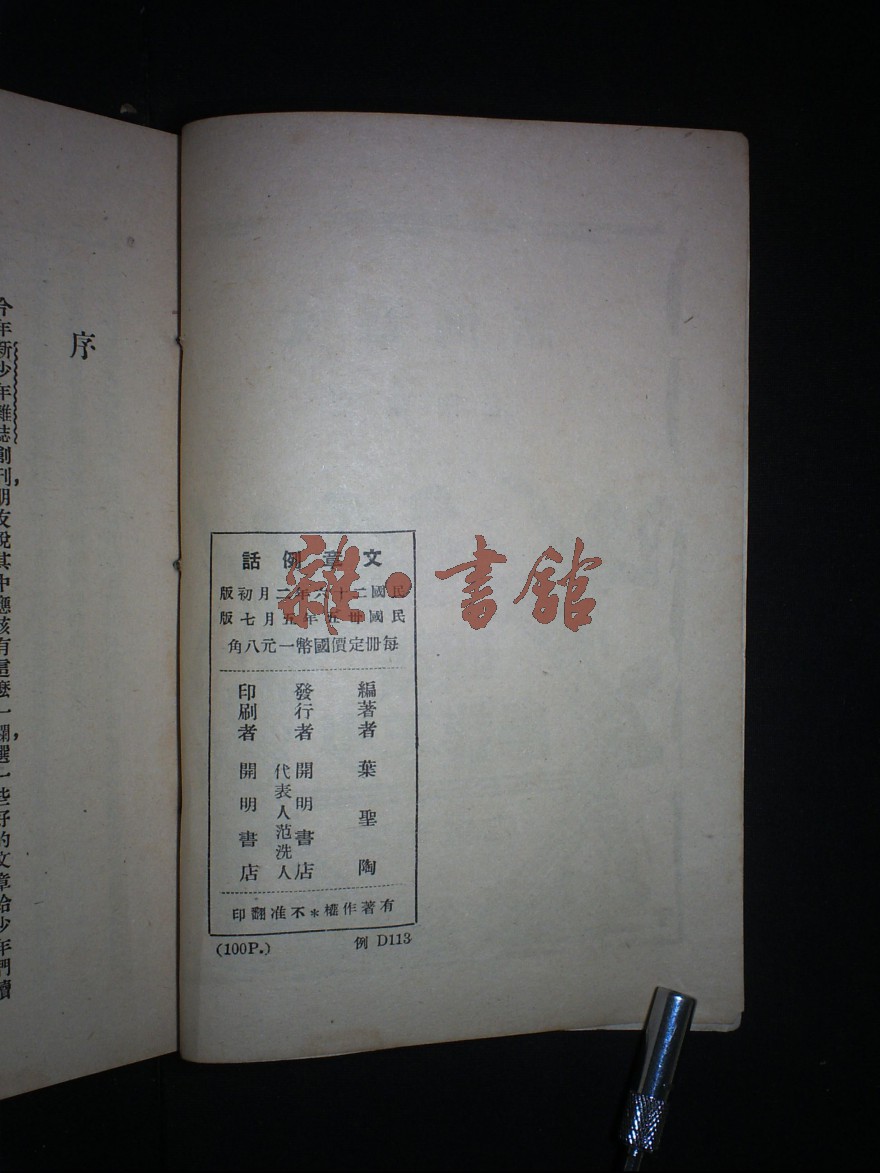 文章例話
民國二十六年二月初版
民國卅五年五月七版
每冊定價國幣一元八角
編著者 葉聖陶
發行者 開明書店
代表人范洗人
印刷者 開明書店
有著作權*不准翻印
(100P.) 例 D113
雜·書館
序
今年新少年雜誌創刊，朋友說其中應該有這麼一欄，選一些好的文章給少年們讀